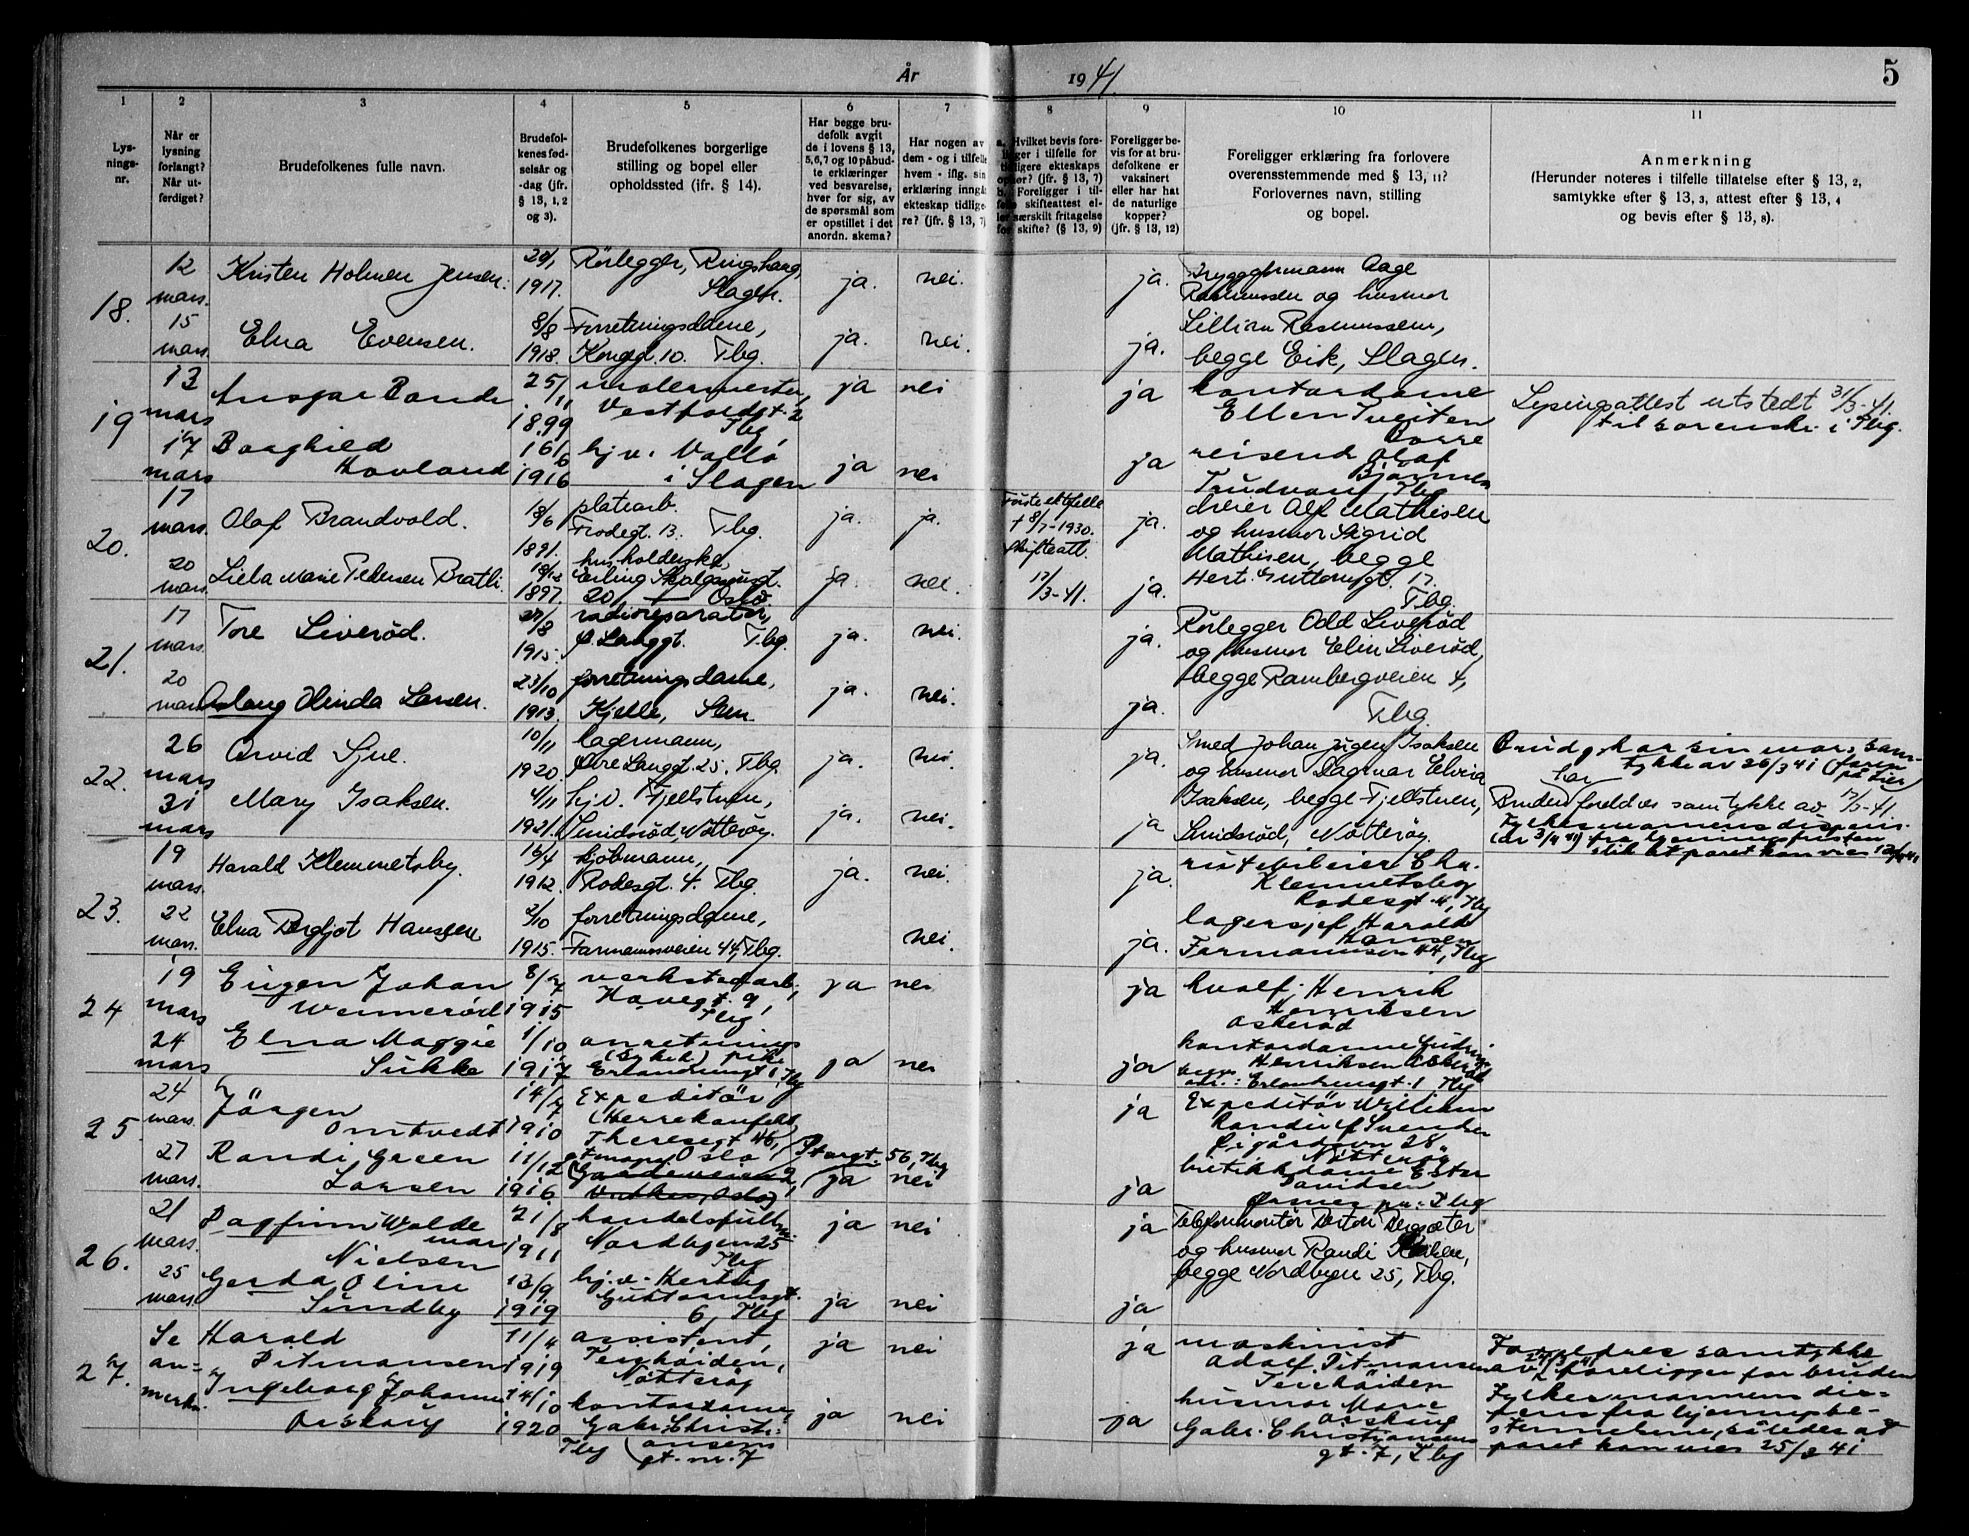 År 1941. 5
1 2 3 4 5 6 7 8 9 10 11
Lys-
nings-
nr.
Når er
lysning
forlangt?
Når ut-
ferdiget?
Brudefolkenes fulle navn.
Brudefol-
kenes fød-
selsår og
-dag (jfr.
§ 13, 1, 2
og 3).
Brudefolkenes borgerlige
stilling og bopel eller
opholdssted (jfr. § 14).
Har begge bru-
defolk avgit
de i lovens § 13,
5,6,7 og 10 påbud-
te erklæringer
ved besvarelse,
hver for sig, av
de spørsmål som
er opstillet i det
anordn. skema?
Har nogen av
dem - og i tilfelle
hvem - iflg. sin
erklæring inngåt
ekteskap tidlige-
re? (jfr. § 13, 7)
a. Hvilket bevis fore-
ligger i tilfelle for
tidligere ekteskaps
ophør? (jfr. § 13, 7)
b. Foreligger i til-
felle skifteattest el-
ler særskilt fritagelse
for skifte? (§ 13, 9)
Foreligger be-
vis for at bru-
defolkene er
vaksinert
eller har hat
de naturlige
kopper?
(jfr. § 13, 12)
Foreligger erklæring fra forlovere
overensstemmende med § 13, 11?
Forlovernes navn, stilling
og bopel.
Anmerkning
(Herunder noteres i tilfelle tillatelse efter § 13, 2,
samtykke efter § 13, 3, attest efter § 13, 4
og bevis efter § 13, 8).
18.
12
mars.
Kristen Holmen Jensen.
20/1
1917.
Rørlegger, Ringshaug,
Slagen.
ja. nei. ja.
Aage
Rasmussen og husmor
15
mars.
Elna Evensen.
8/8
1918.
Forretningsdame,
Kongsgt. 10. Tbg.
ja. nei. ja.
Lillian Rasmussen,
begge Eik, Slagen.
19
13
mars
Ansgar Bonde
25/11
1899
malermester,
Vestfoldgt. 2
Tbg
ja nei ja
kontordame
Ellen Tveiten
Lysingsattest utstedt 31/3-41.
til sorenskr. i Tbg.
17
mars
Borghild
Hovland
16/6
1916
hj.v. Vallø
i Slagen
ja nei ja
reisende Olaf
20.
17
mars.
Olaf Brandvold.
18/6
1891.
platearb.
Frodegt. 13. Tbg.
ja. ja.
Første ektefelle
† 8/7-1930.
Skifteatt.
17/3-41.
ja.
dreier Alf Mathisen
og husmor Sigrid
Mathisen, begge
Hert. Guttormsgt. 17.
Tbg.
20
mars.
Marie Pedersen Bratli.
1897.
husholderske,
Erling Skjalgssønsgt.
20 Oslo.
ja. nei. ja.
21.
17
mars.
Tore Liverød.
1915.
radioreparatør,
Ø. Langgt. Tbg.
ja. nei. ja.
Rørlegger Odd Liverød
og husmor Elin Liverød,
begge Rambergveien 4,
Tbg.
20
mars
Aslaug Hinda Larsen.
23/10
1913.
forretningsdame,
Kjelle, Sem.
ja. nei. ja.
22.
26
mars
Arvid Sjue.
10/11
1920.
lagermann,
Øvre Langgt. 25. Tbg.
ja. nei. ja.
Smed Johan Jørgen Isaksen
og husmor Dagmar Elvira
Isaksen, begge Fjellstuen,
Smidsrød, Nøtterøy.
Brudg. har sin mors sam-
tykke av 26/3 41 (faren
på sjø)
31
mars
Mary Isaksen.
4/11
1921.
hj.v. Fjellstuen,
Smidsrød, Nøtterøy.
ja. nei. ja
Bruden har foreldres samtykke av 17/3-41.
Fylkesmannens dispens.
(av 3/4 41) fra lysningsfristen
slik at paret kan vies 12/4 41
23.
19
mars.
Harald Klemmetsby.
16/4
1912.
kjøbmann,
Rodesgt. 4. Tbg.
ja. nei. ja.
rutebileier Chr.
Klemmetsby
Rodesgt. 4, Tbg
22
mars.
Elna Bergljot Hansen
2/10
1915.
forretningsdame,
Farmannsveien 44, Tbg.
nei. ja.
lagersjef Harald
Hansen
Farmannsvn 44, Tbg
24
19
mars
Eugen Johan
Wennerød
8/7
1915
verkstedarb.,
Havegt. 9,
Tbg
ja nei ja
hvalf. Henrik
Henriksen
Oserød
24
mars
Elna Maggie
Sukke
1/10
1917
anretnings
pike
Erlandsensgt 1, Tbg
ja nei ja
kontordame
Henriksen
adr.: Erlandsensgt. 1 Tbg
25
24
mars.
Jörgen
Omtvedt
14/7
1910
Expeditör
(Herrekonfeksj)
Theresegt 46,
Oslo
ja
Expeditör William
Svendsen
28,
Nøtterøy
27
mars.
Randi Green
Larsen
11/12
1916
Storgt. 56, Tbg
ja nei ja
butikkdame Ester
Davidsen
Tbg
26.
21
mars.
Dagfinn Walde
mar
Nielsen
21/8
1911
handelsfullm.
Nordbyen 25
Tbg
ja nei ja
Telefonmontör Bergsæter
og husmor Randi
begge Nordbyen 25, Tbg.
25
mars.
Gerda Oline
Sundby
13/9
1919
hj.v. Hertug
Guttormsgt.
6, Tbg
ja nei ja
27.
Se
an=
merkn.
Harald
Ditmansen
11/4
1919
assistent,
Teiehøiden,
Nøtterøy
ja nei ja
maskinist
Adolf Ditmansen
Teiehöiden
Foreldres samtykke
av 24/3 41 foreligger for bruden
Ingeborg Johanne
Orskaug
14/10
1920
kontordame,
Gabr. Christi=
ansens
gt. nr. 7
Tbg
ja nei ja
husmor Marie
Orskaug
Gabr. Christiansens
gt. 7, Tbg
Fylkesmannens dis=
pens fra lysningsbe=
stemmelsene, således at
paret kan vies 25/3 41